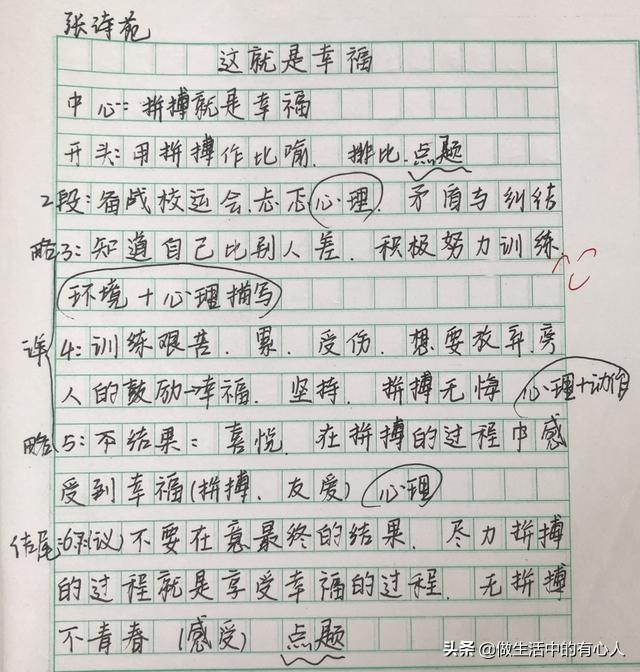 张诗苑
这就是幸福
中心:拼搏就是幸福
开头:用拼搏作比喻.排比.点题
2段:备战校运会.忐忑心理.矛盾与纠结
略3:知道自己比别人差.积极努力训练
环境+心理描写
详4:训练艰苦.累.受伤.想要放弃.旁
人的鼓励→幸福.坚持.拼搏无悔 心理+动作
略5:不结果:喜悦.在拼搏的过程中感
受到幸福(拼搏.友爱) 心理
结尾:6议)不要在意最终的结果.尽力拼搏
的过程就是享受幸福的过程.无拼搏
不青春(感受) 点题
头条 @做生活中的有心人